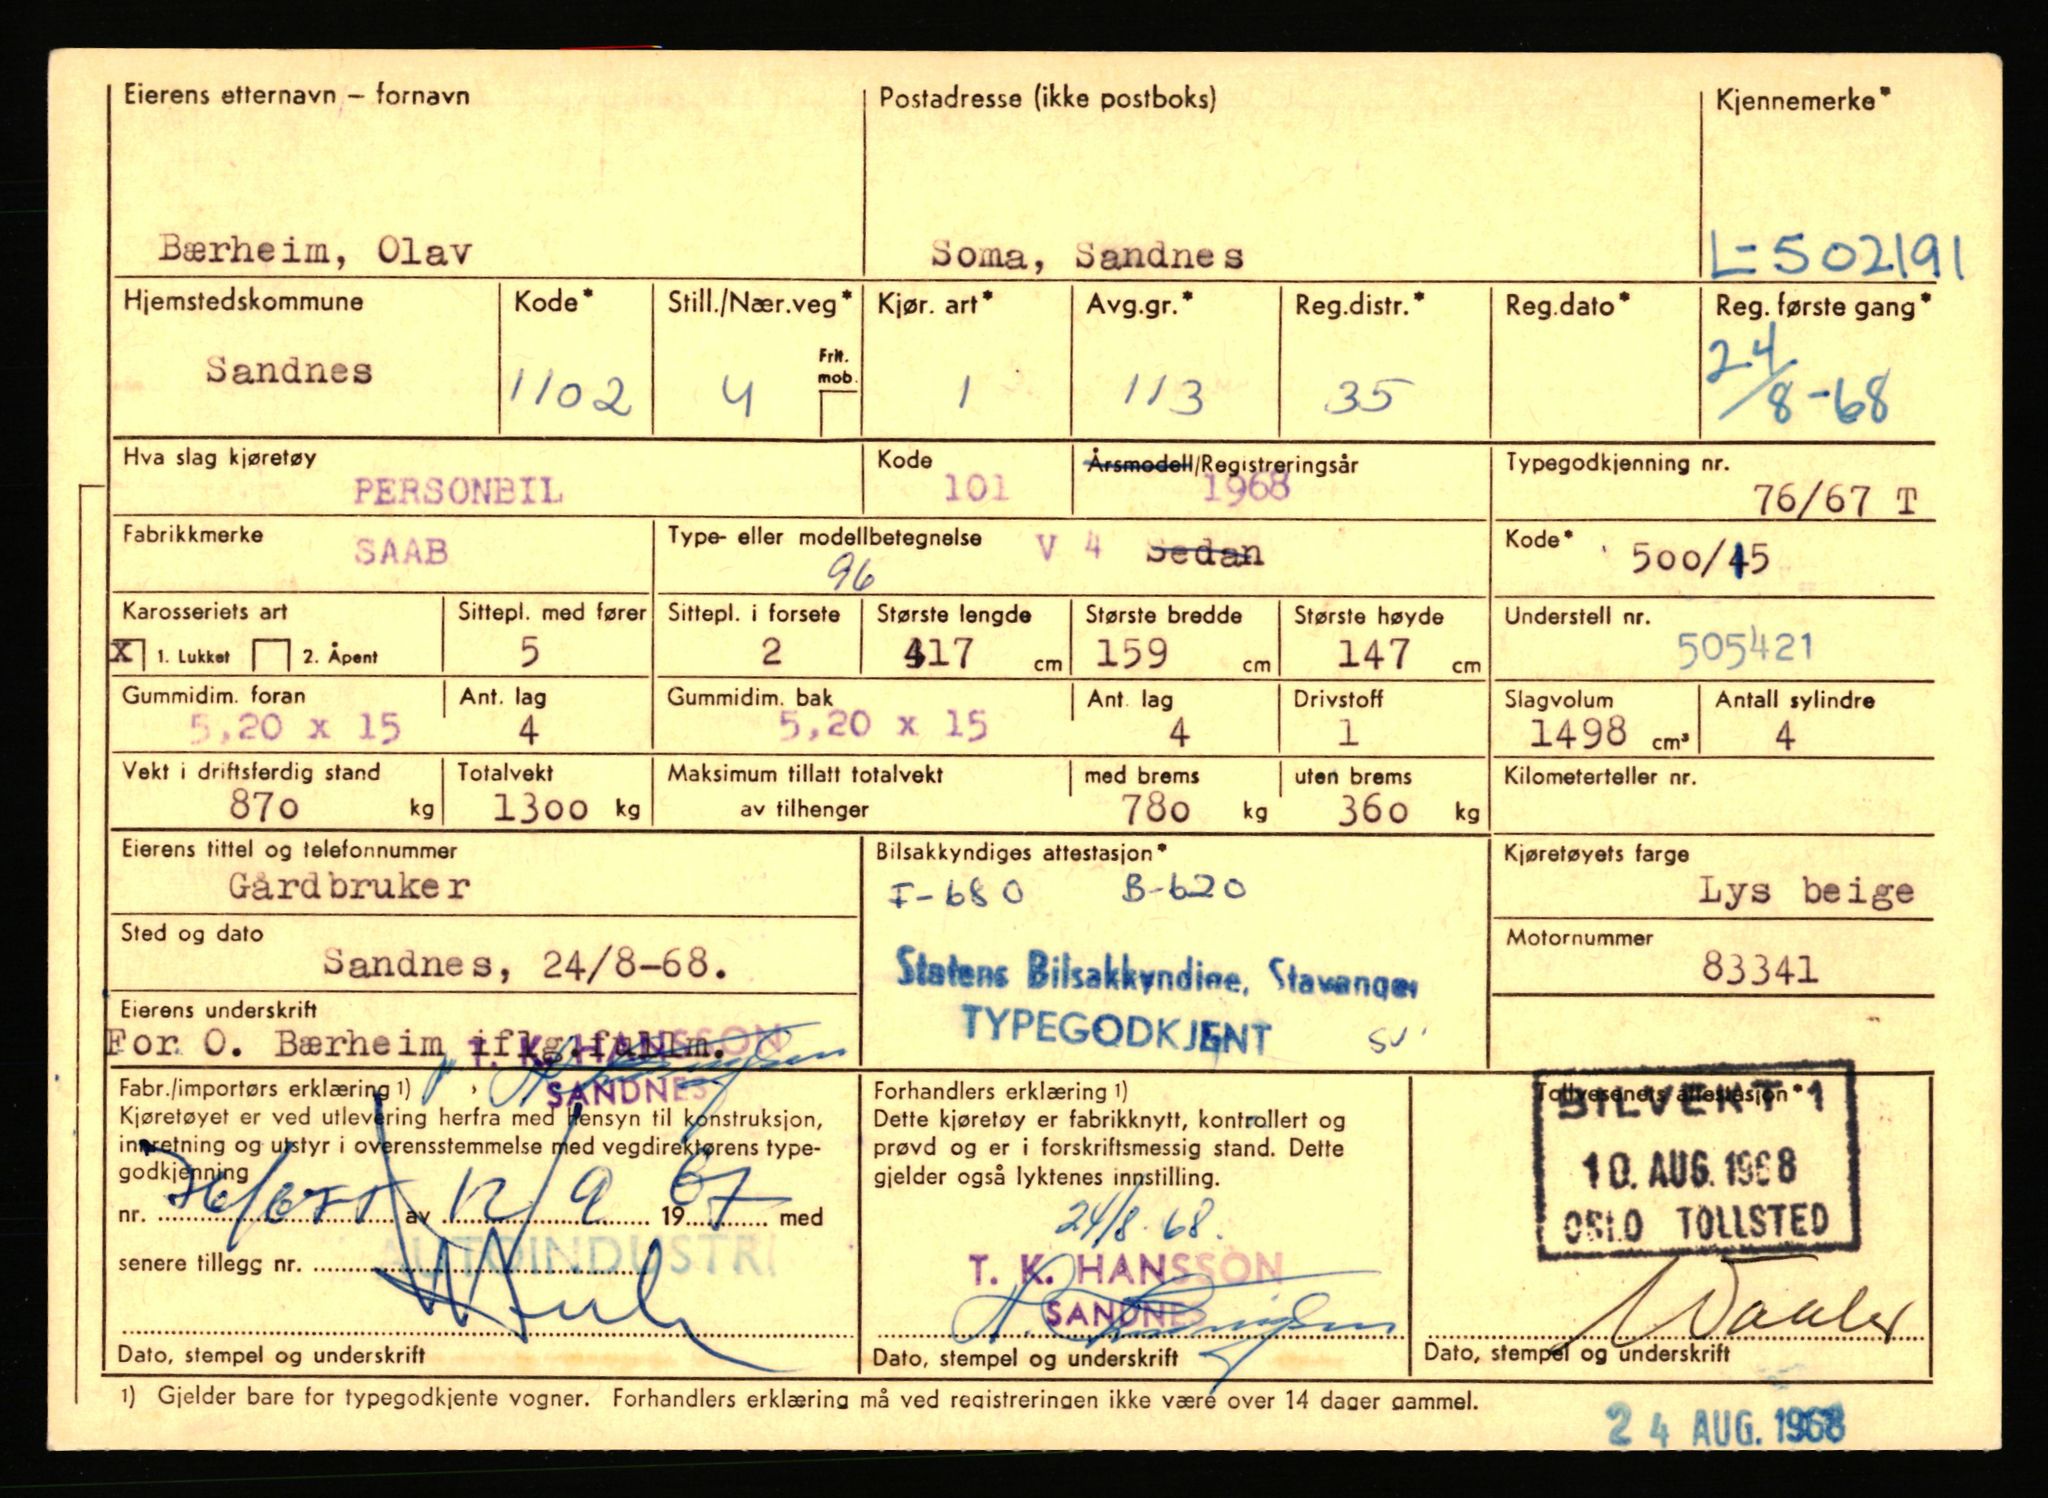 Eierens etternavn – fornavn Postadresse (ikke postboks) Kjennemerke*
Bærheim, Olav Soma, Sandnes L-502191
Hjemstedskommune Kode* Still./Nær.veg* Kjør. art* Avg.gr.* Reg.distr.* Reg.dato* Reg. første gang*
Frit. mob.
Sandnes 1102 4 1 113 35 24/8-68
Hva slag kjøretøy Kode Årsmodell/Registreringsår Typegodkjenning nr.
PERSONBIL 101 1968 76/67 T
Fabrikkmerke Type- eller modellbetegnelse Kode*
SAAB 96 V 4 Sedan 500/45
Karosseriets art Sittepl. med fører Sittepl. i forsete Største lengde Største bredde Største høyde Understell nr.
X 1. Lukket 2. Åpent 5 2 417 cm 159 cm 147 cm 505421
Gummidim. foran Ant. lag Gummidim. bak Ant. lag Drivstoff Slagvolum Antall sylindre
5,20 x 15 4 5,20 x 15 4 1 1498 cm³ 4
Vekt i driftsferdig stand Totalvekt Maksimum tillatt totalvekt med brems uten brems Kilometerteller nr.
870 kg 1300 kg av tilhenger 780 kg 360 kg
Eierens tittel og telefonnummer Bilsakkyndiges attestasjon* Kjøretøyets farge
Gårdbruker F-680 B-620 Lys beige
Sted og dato Motornummer
Sandnes, 24/8-68. 83341
Statens Bilsakkyndige, Stavanger
TYPEGODKJENT
Eierens underskrift
For O. Bærheim iflg.fullm.
T. K. HANSSON
SANDNES
Fabr./importørs erklæring 1)
Kjøretøyet er ved utlevering herfra med hensyn til konstruksjon,
innretning og utstyr i overensstemmelse med vegdirektørens type-
godkjenning
nr. 76/67T av 12/9 1967 med
senere tillegg nr.
AUTOINDUSTRI
Dato, stempel og underskrift
Forhandlers erklæring 1)
Dette kjøretøy er fabrikknytt, kontrollert og
prøvd og er i forskriftsmessig stand. Dette
gjelder også lyktenes innstilling.
24/8-68.
T. K. HANSSON
SANDNES
Dato, stempel og underskrift
Tollvesenets attestasjon*
BILVEKT 1
10. AUG. 1968
OSLO TOLLSTED
Dato, stempel og underskrift
1) Gjelder bare for typegodkjente vogner. Forhandlers erklæring må ved registreringen ikke være over 14 dager gammel.
24 AUG. 1968